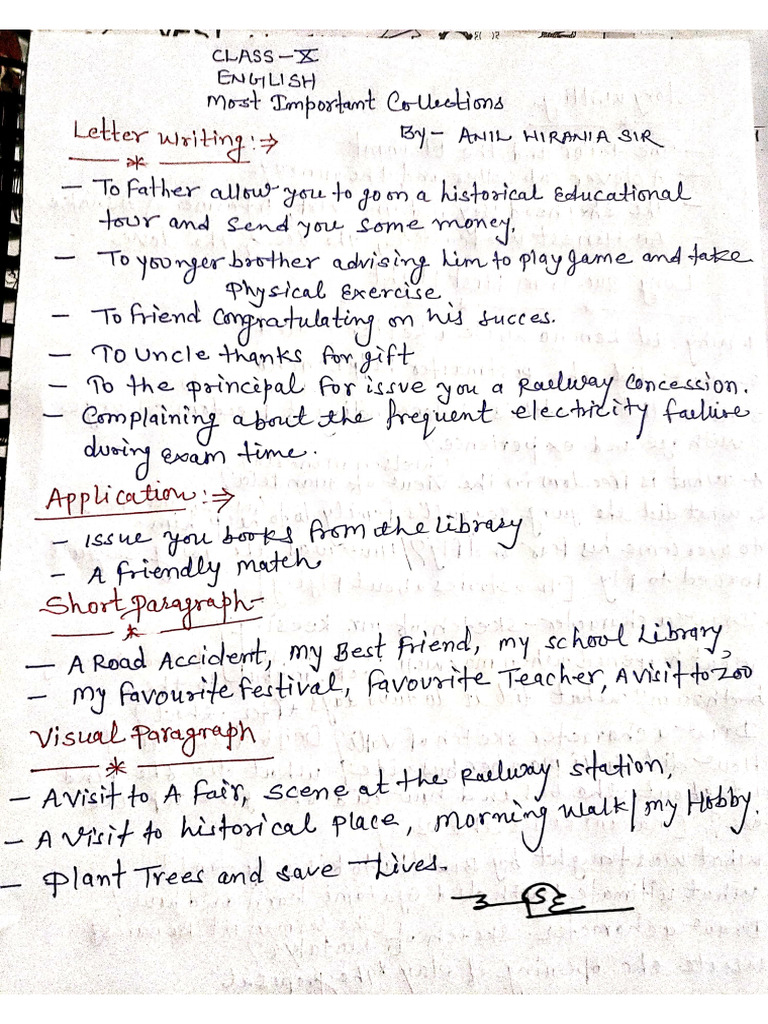 CLASS-X
ENGLISH
Most Important Collections
Letter Writing:⇒ By- ANIL HIRANIA SIR
- To Father allow you to go on a historical Educational
tour and send you some money.
- To younger brother advising him to play game and take
Physical Exercise
- To friend congratulating on his succes.
- To Uncle thanks for gift
- To the principal for issue you a Railway Concession.
- Complaining about the frequent electricity failure
during exam time.
Application:⇒
- Issue you books from the library
- A friendly match
Short Paragraph-
- A Road Accident, My Best Friend, My school Library,
- My favourite festival, favourite Teacher, A visit to Zoo
Visual Paragraph
- A visit to A fair, scene at the Railway station,
- A visit to historical place, Morning walk/my Hobby.
- Plant Trees and save Lives.